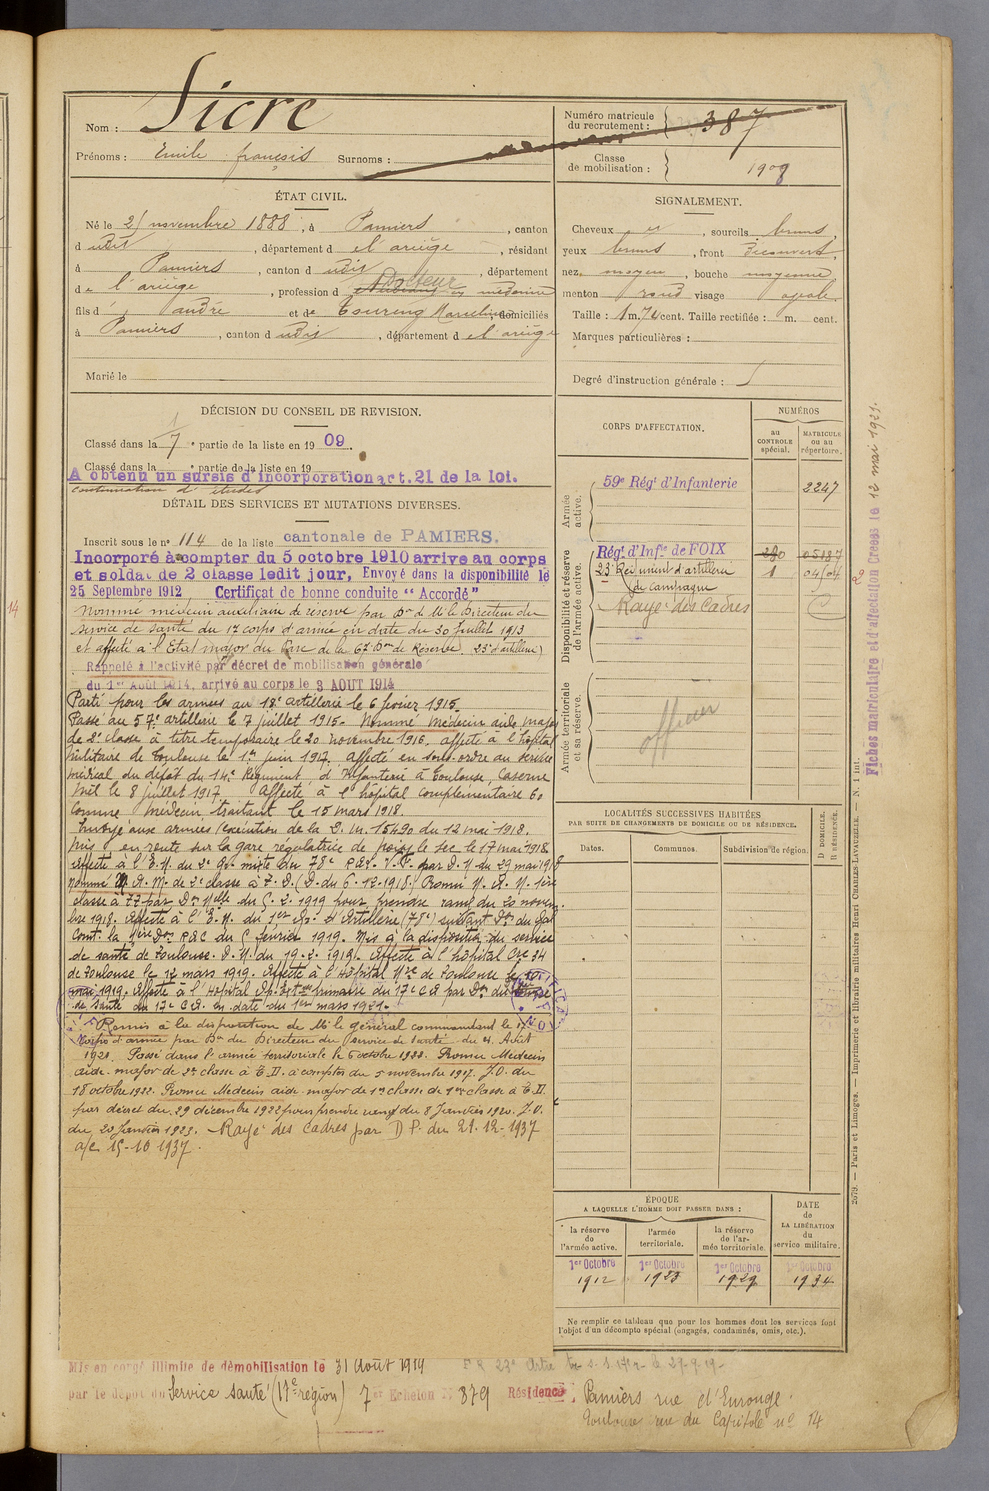 Nom : Sicre
Prénoms : Emile françois Surnoms :
Numéro matricule du recrutement : 387
Classe de mobilisation : 1908
ÉTAT CIVIL.
Né le 21 novembre 1888, à Pamiers, canton
d udit, département d e l'ariège, résidant
à Pamiers, canton d udit, département
d e l'ariège, profession d Docteur en médecine
fils d' andré et de Toureng Marceline, domiciliés
à Pamiers, canton d udit, département d e l'ariège
Marié le
SIGNALEMENT.
Cheveux et, sourcils bruns,
yeux bruns, front découvert,
nez moyen, bouche moyenne,
menton rond visage ovale.
Taille : 1 m. 74 cent. Taille rectifiée : m. cent.
Marques particulières :
Degré d'instruction générale : 5
DÉCISION DU CONSEIL DE REVISION.
Classé dans la 7e partie de la liste en 1909.
Classé dans la e partie de la liste en 19
A obtenu un sursis d'incorporation art. 21 de la loi.
continuation d'études
DÉTAIL DES SERVICES ET MUTATIONS DIVERSES.
Inscrit sous le no 114 de la liste cantonale de PAMIERS.
Incorporé à compter du 5 octobre 1910 arrivé au corps
et soldat de 2 classe ledit jour, Envoyé dans la disponibilité le
25 Septembre 1912 Certificat de bonne conduite "Accordé"
Nommé médecin auxiliaire de réserve par Don de Mr le Directeur du
service de santé du 17 corps d'armée en date du 30 Juillet 1913
et affecté à l'Etat major du Parc de la 67e Don de Réserve (23e d'artillerie)
Rappelé à l'activité par décret de mobilisation générale
du 1er Août 1914, arrivé au corps le 3 AOUT 1914
Parti pour les armées au 18e artillerie le 6 février 1915.
Passé au 57e artillerie le 7 juillet 1915. Nommé Médecin aide major
de 2e classe à titre temporaire le 20 novembre 1916. affecté à l'hôpital
militaire de Toulouse le 1er juin 1917. Affecté en sous-ordre au service
médical du dépôt du 14e Régiment d'Infanterie à Toulouse, Caserne
Niel le 8 juillet 1917 Affecté à l'hôpital complémentaire 60
comme médecin traitant le 15 mars 1918.
Envoyé aux armées (exécution de la D. M. 15490 du 12 mai 1918.
Mis en route sur la gare régulatrice de Noisy le Sec le 17 mai 1918.
Affecté à l'E.M. du 2e Gr. mixte du 78e par D. M du 29 mai 1918
Nommé M. A. M. de 2e classe à T. D. (D. du 6.12.1918) Promu M. A. M. 1ère
classe à TT par Don Melle du 5. 2. 1919 pour prendre rang du 20 novem-
bre 1918. Affecté à l'E. M. du 1er Gr. d'Artillerie (78e) suivant Don du Gal
Comt la Don du 5 février 1919. Mis à la disposition du service
de santé de Toulouse. D. M. du 19. 2. 1919. Affecté à l'hôpital Cre 34
de Toulouse le 12 mars 1919. Affecté à l'Hôpital Mre de Toulouse le 10
mai 1919. Affecté à l'Hôpital du 17e C A par Don du Service
de Santé du 17e C A en date du 1er mars 1921.
Remis à la disposition de Mr le général commandant le 17
Corps d'armée par Don du Directeur du Service de Santé du 4 Août
1921. Passé dans l'armée territoriale le 6 octobre 1922. Promu Médecin
aide-major de 2e classe à T. D. à compter du 5 novembre 1917. J.O. du
18 octobre 1922. Promu Médecin aide-major de 1re classe à T. D
par décret du 29 décembre 1922 pour prendre rang du 8 Janvier 1920. J. O.
du 20 Janvier 1923. Rayé des cadres par D P. du 21.12.1937
a/c 15-10 1937.
CORPS D'AFFECTATION.
NUMÉROS
au CONTROLE spécial.
MATRICULE ou au répertoire.
Armée active.
59e Régt d'Infanterie 2247
Disponibilité et réserve de l'armée active.
Régt d'Infie de FOIX 280 05187
23e Régiment d'artillerie 1 04/04
de campagne
Rayé des Cadres
Armée territoriale et sa réserve.
officier
LOCALITÉS SUCCESSIVES HABITÉES
PAR SUITE DE CHANGEMENTS DE DOMICILE OU DE RÉSIDENCE.
Dates. Communes. Subdivision de région.
D DOMICILE.
R RÉSIDENCE.
ÉPOQUE
A LAQUELLE L'HOMME DOIT PASSER DANS :
la réserve de l'armée active.
l'armée territoriale.
la réserve de l'armée territoriale.
DATE de LA LIBÉRATION du service militaire.
1er Octobre 1912
1er Octobre 1923
1er Octobre 1929
1er Octobre 1934
Ne remplir ce tableau que pour les hommes dont les services font
l'objet d'un décompte spécial (engagés, condamnés, omis, etc.).
Mis en congé illimité de démobilisation le 31 Août 1919
par le dépôt du Service santé (17e région) 7er Echelon No 379 Résidence Pamiers rue d'Emrouge.
Toulouse rue du Capitole no 14
Fiches matriculaire et d'affectation Créées le 12 mai 1921.
2579. — Paris et Limoges. — Imprimerie et librairie militaires Henri CHARLES-LAVAUZELLE. — N. 1 int.
14